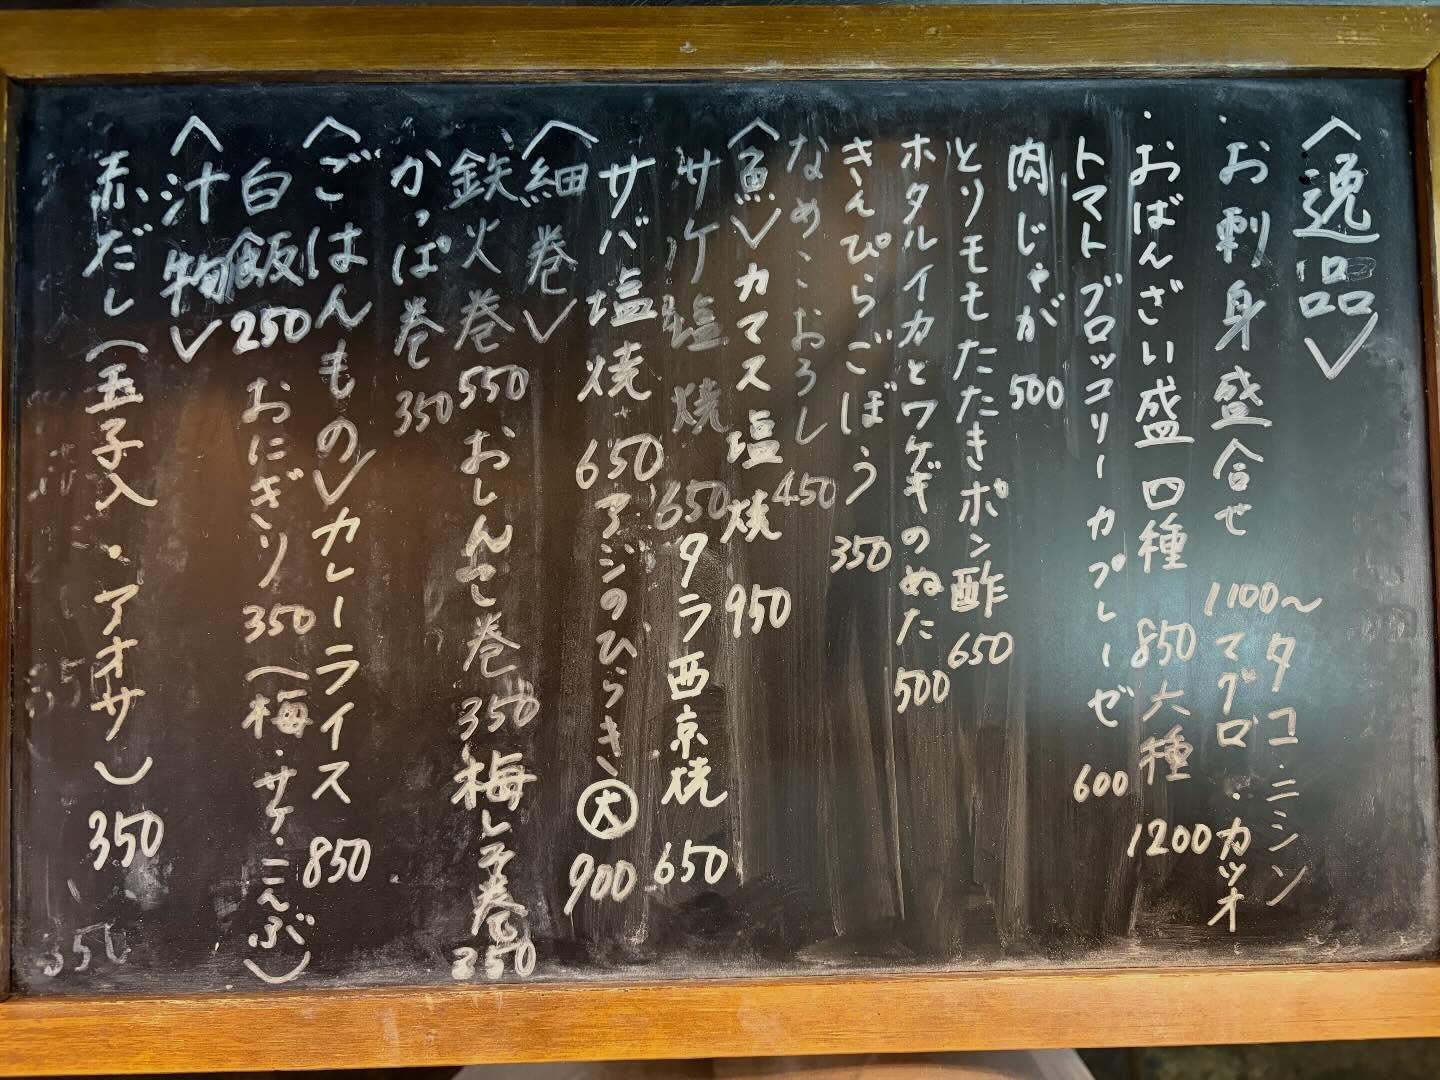 〈逸品〉
・お刺身盛合せ 1100〜 タコ・ニシン
マグロ・カツオ
・おばんざい盛 四種 850 六種 1200
トマトブロッコリーカプレーゼ 600
肉じゃが 500
とりモモたたきポン酢 650
ホタルイカとワケギのぬた 500
きんぴらごぼう 350
なめこおろし 450
〈魚〉カマス塩焼 950
サケ塩焼 650 タラ西京焼 650
サバ塩焼 650 アジのひらき 大 900
〈細巻〉
鉄火巻 550 おしんこ巻 350 梅しそ巻 350
かっぱ巻 350
〈ごはんもの〉カレーライス 850
白飯 250 おにぎり 350 (梅・サケ・こんぶ)
〈汁物〉
赤だし (玉子入・アオサ) 350
350